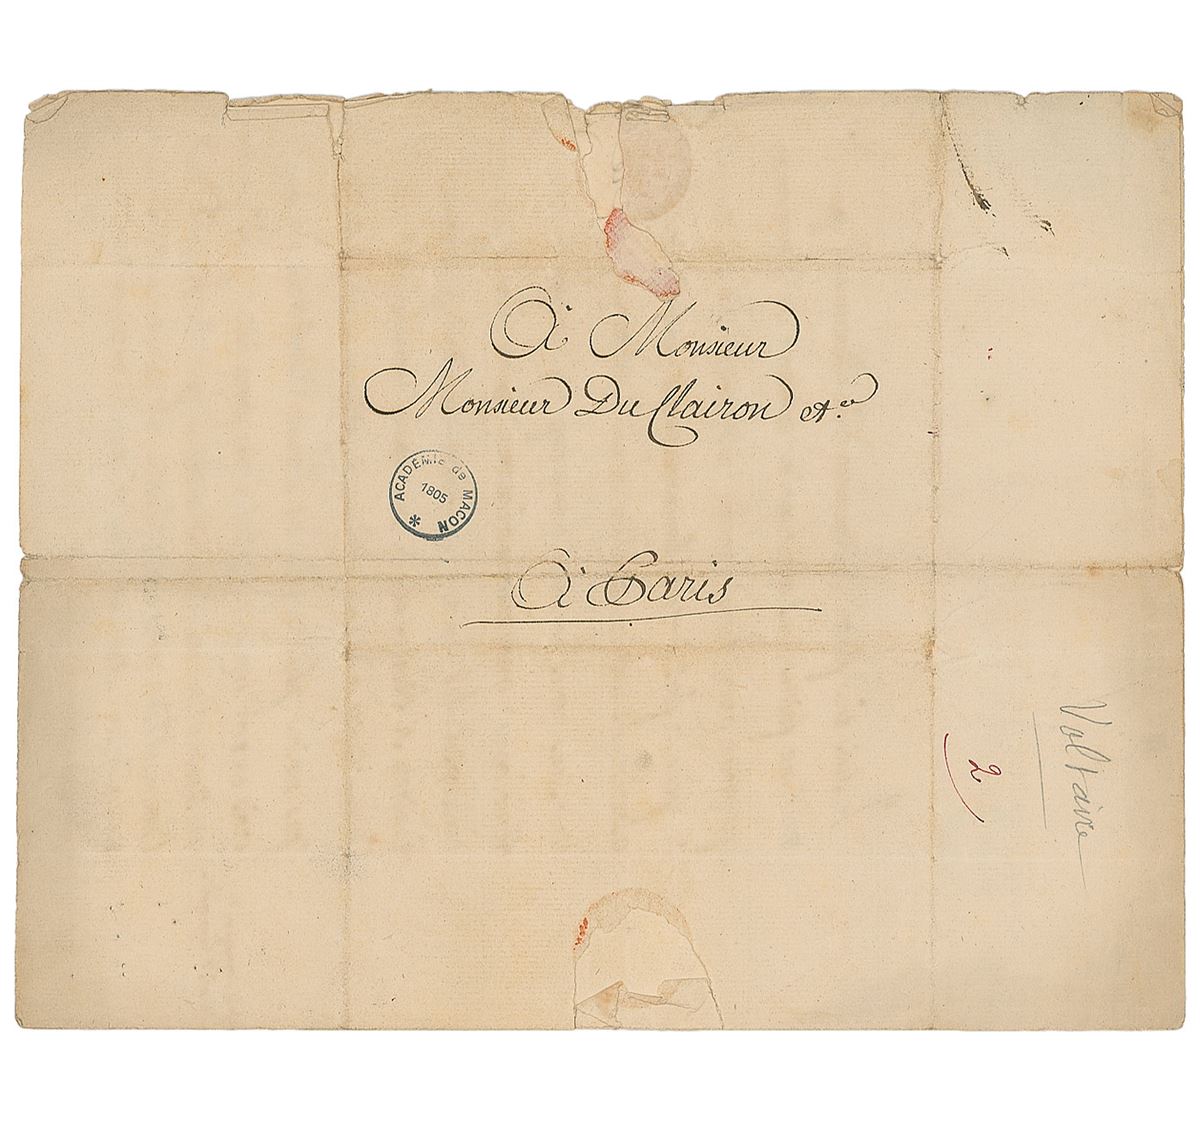 À Monsieur
Monsieur Du Clairon &.a
ACADÉMIE de MACON
1805
À Paris
2
Voltaire